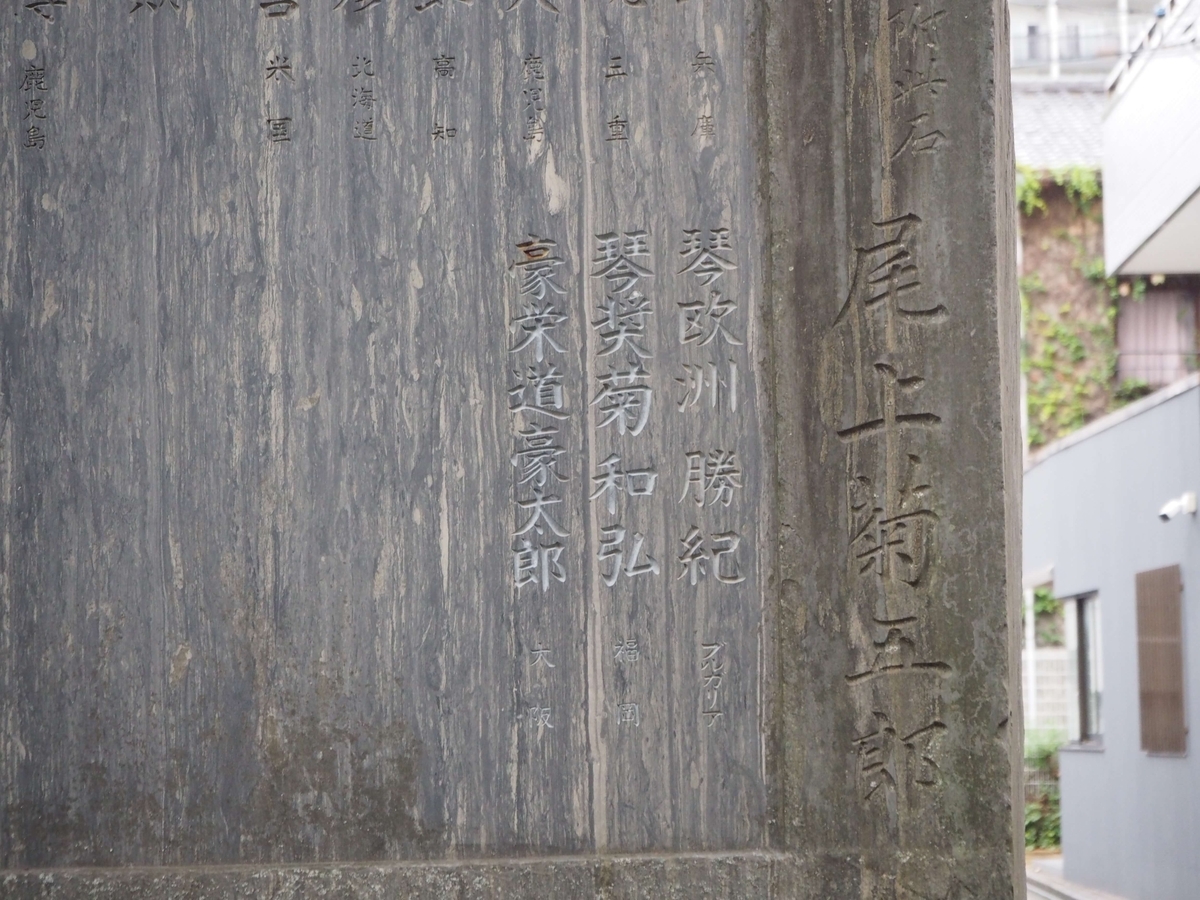 附此石
尾上菊五郎
兵庫
琴欧洲勝紀
ブルガリア
三重
琴奨菊和弘
福岡
鹿児島
豪栄道豪太郎
大阪
高知
北海道
米国
鹿児島